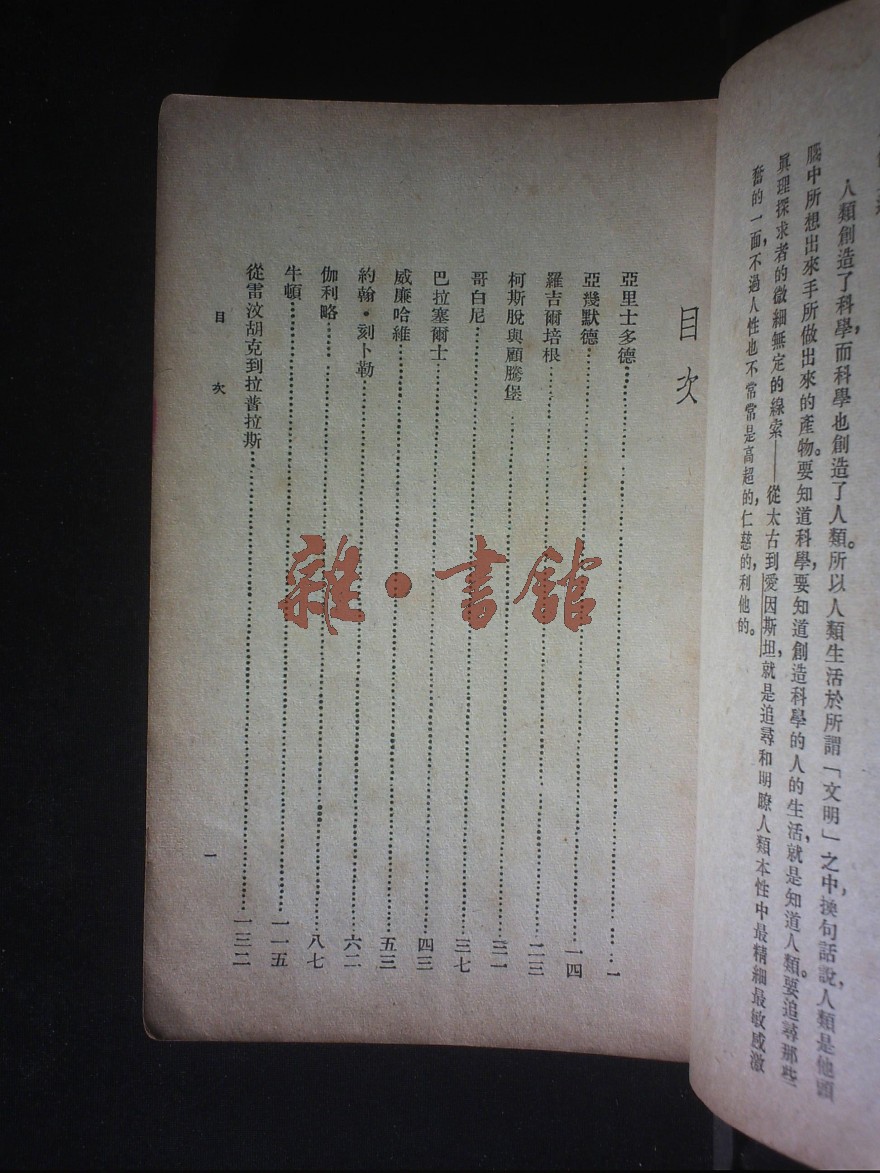 人類創造了科學，而科學也創造了人類。所以人類生活於所謂「文明」之中，換句話說，人類是他頭
腦中所想出來手所做出來的產物。要知道科學，要知道創造科學的人的生活，就是知道人類。要追尋那些
眞理探求者的微細無定的線索——從太古到愛因斯坦，就是追尋和明瞭人類本性中最精細最敏感激
奮的一面，不過人性也不常常是高超的，仁慈的，利他的。
目次
亞里士多德……一
亞幾默德……一四
羅吉爾培根……二三
柯斯脫與顧騰堡……三一
哥白尼……三七
巴拉塞爾士……四三
威廉哈維……五三
約翰・刻卜勒……六二
伽利略……八七
牛頓……一一五
從雷汶胡克到拉普拉斯……一三二
目次
一
雜・書館